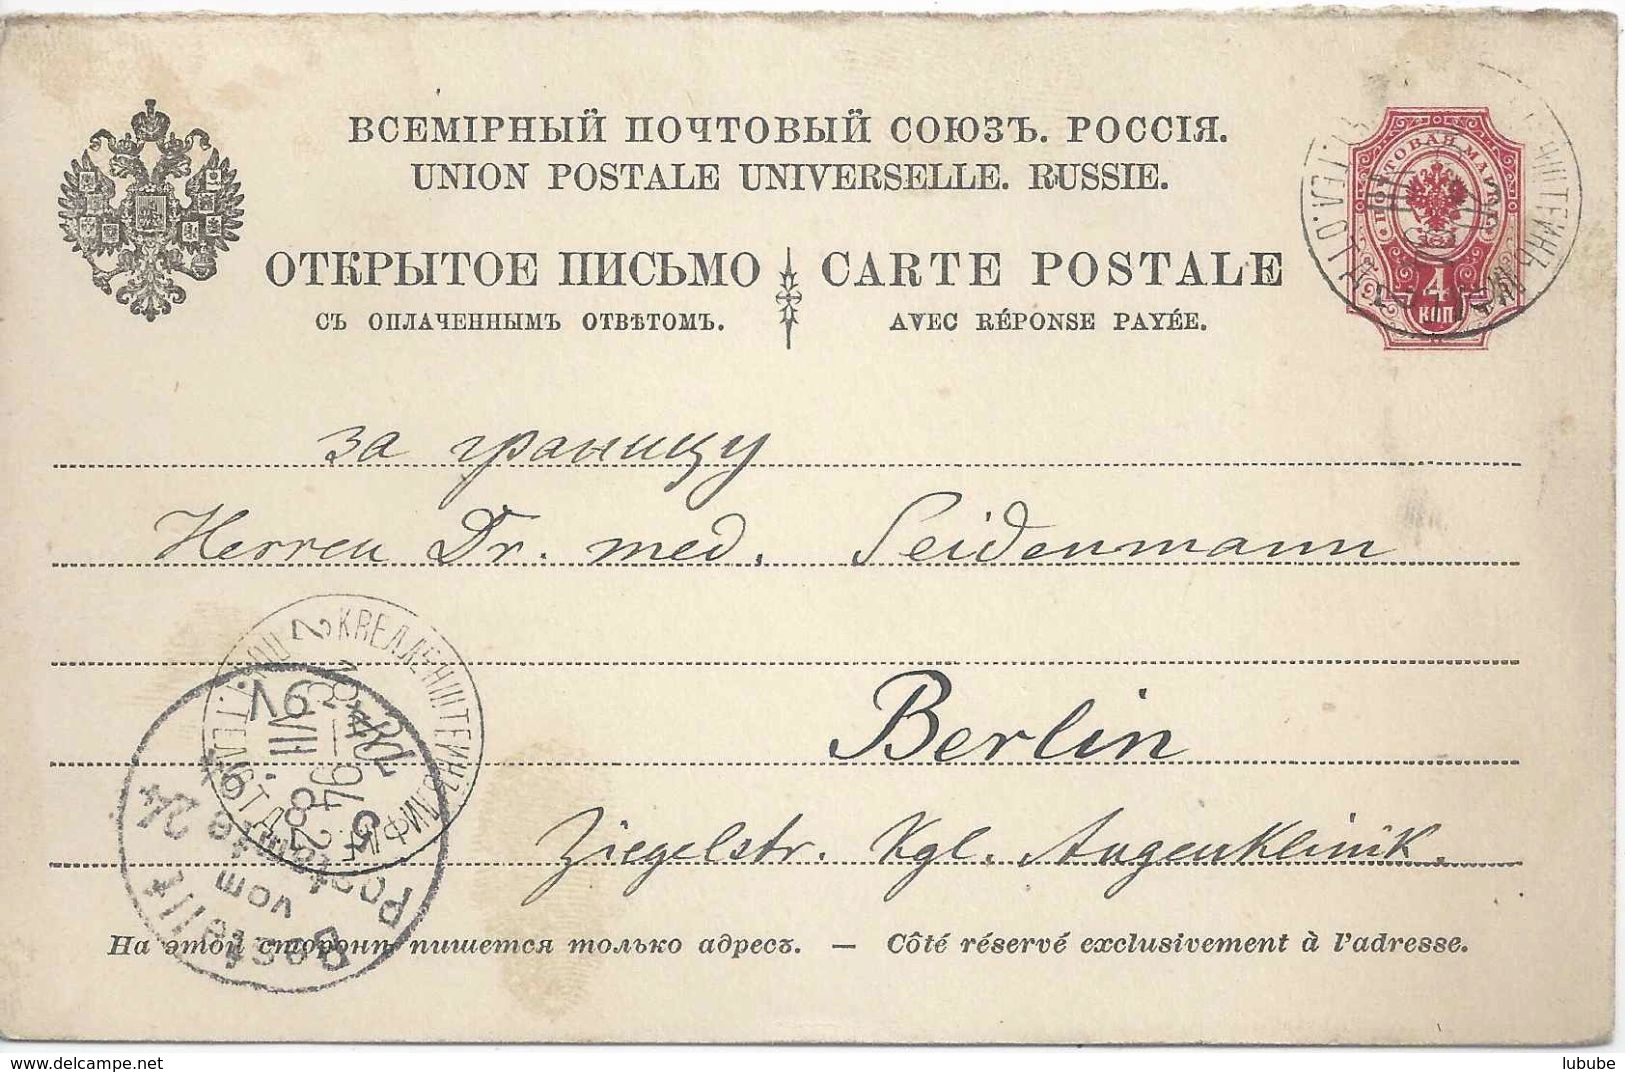 ВСЕМІРНЫЙ ПОЧТОВЫЙ СОЮЗЪ. РОССІЯ.
UNION POSTALE UNIVERSELLE. RUSSIE.
ОТКРЫТОЕ ПИСЬМО
СЪ ОПЛАЧЕННЫМЪ ОТВѢТОМЪ.
CARTE POSTALE
AVEC RÉPONSE PAYÉE.
ПОЧТОВАЯ МАРКА
4
КОП
за границу
Herren Dr. med. Seidenmann
Berlin
Ziegelstr. Kgl. Augenklinik.
Bestellt
vom
Postamte 24
На этой сторонѣ пишется только адресъ. — Côté réservé exclusivement à l'adresse.
www.delcampe.net
lubube